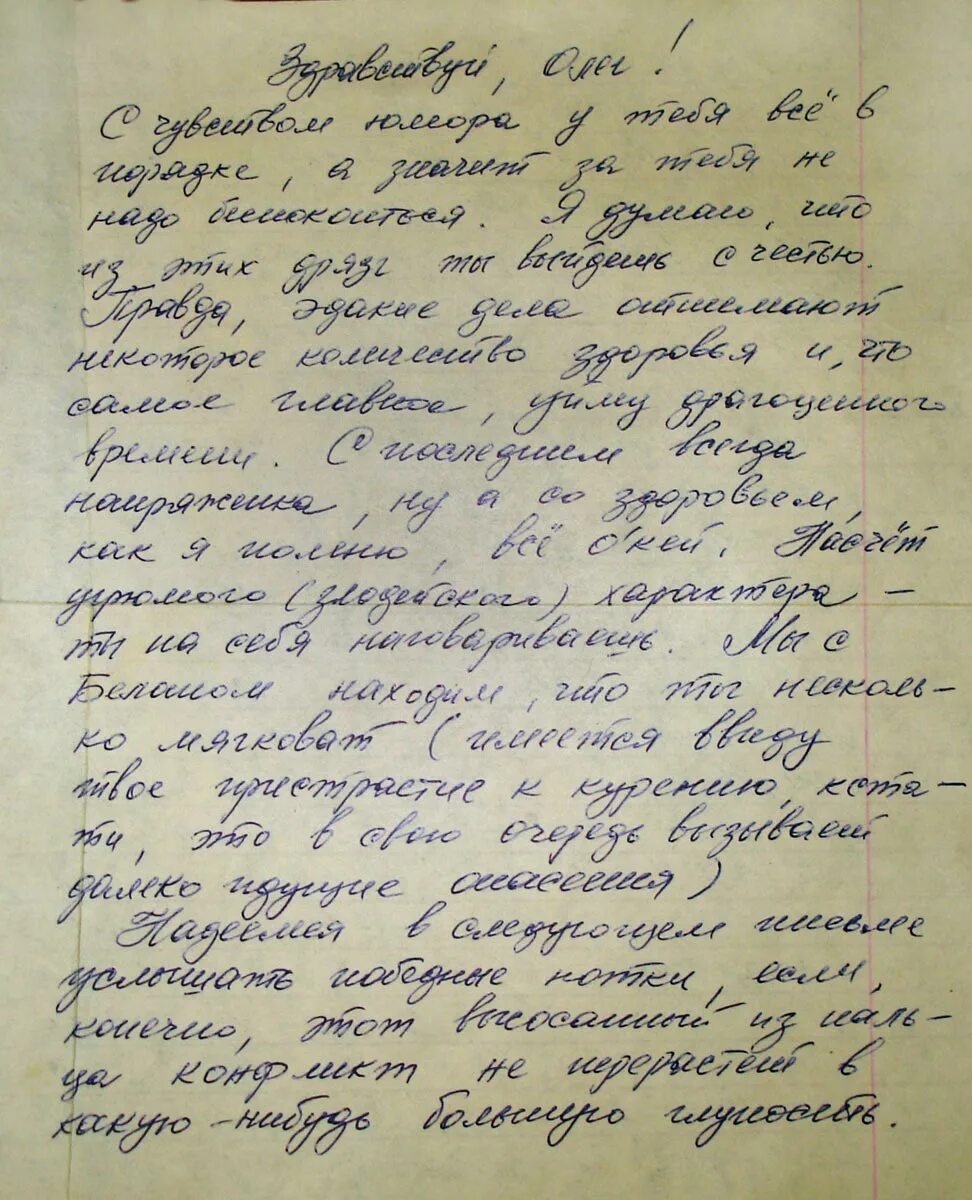 Здравствуй, Олег!
С чувством юмора у тебя всё в
порядке, а значит за тебя не
надо беспокоиться. Я думаю, что
из этих дрязг ты выйдешь с честью.
Правда, эдакие дела отнимают
некоторое количество здоровья и, что
самое главное, уйму драгоценного
времени. С последним всегда
напряженка, ну а со здоровьем,
как я помню, всё о'кей. Насчёт
угрюмого (злодейского) характера –
ты на себя наговариваешь. Мы с
находим, что ты несколь-
ко мягковат (имеется ввиду
твое пристрастие к курению, кста-
ти, это в свою очередь вызывает
далеко идущие опасения)
Надеемся в следующем письме
услышать победные нотки, если,
конечно, этот высосанный из паль-
ца конфликт не перерастёт в
какую-нибудь большую глупость.